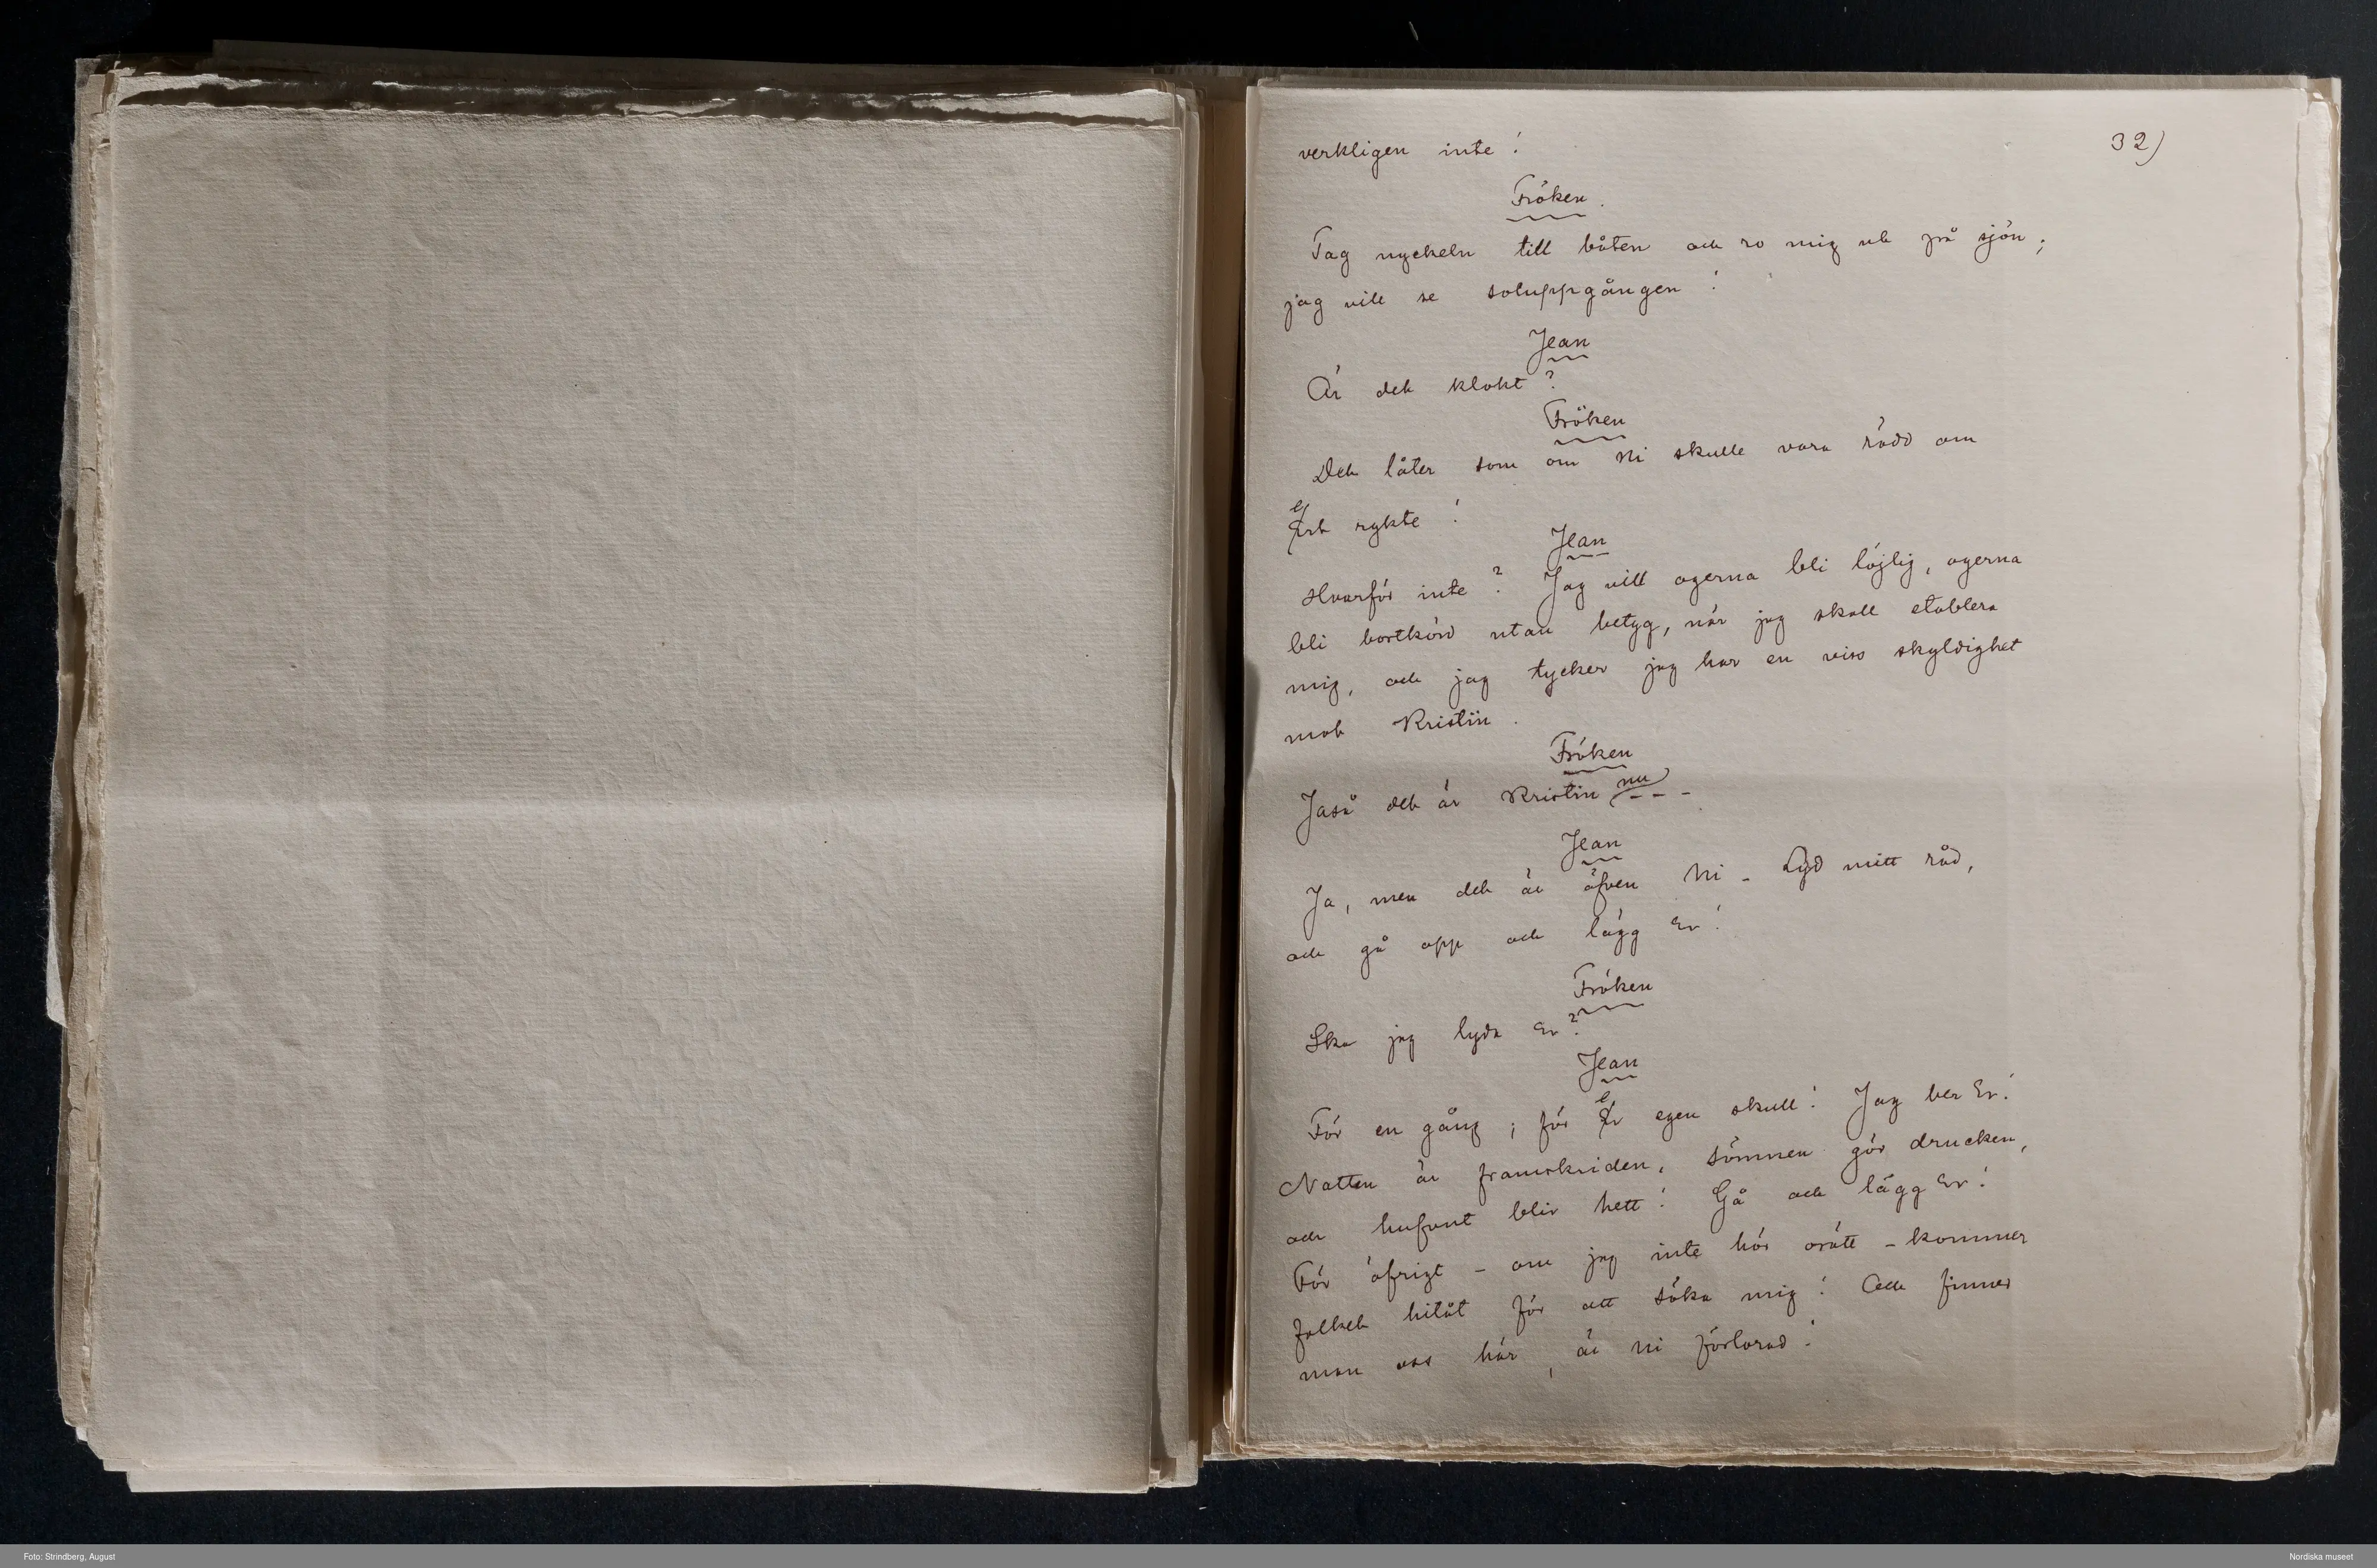 32)
verkligen inte!
Fröken.
Tag nyckeln till båten och ro mig ut på sjön;
jag vill se soluppgången!
Jean
Är det klokt?
Fröken
Det låter som om Ni skulle vara rädd om
ert rykte!
Jean
Hvarför inte? Jag vill ogerna bli löjlig, ogerna
bli bortkörd utan betyg, när jag skall etablera
mig, och jag tycker jag har en viss skyldighet
mot Kristin.
Fröken
Jaså det är Kristin nu - - -
Jean
Ja, men det är äfven Ni - Lyd mitt råd,
och gå opp och lägg Er!
Fröken
Ska jag lyda Er?
Jean
För en gång; för er egen skull! Jag ber Er!
Natten är framskriden, sömnen gör drucken,
och hufvut blir hett! Gå och lägg Er!
För öfrigt - om jag inte hör orätt - kommer
folket hitåt för att söka mig! Och finner
man oss här, är Ni förlorad!
Foto: Strindberg, August
Nordiska museet